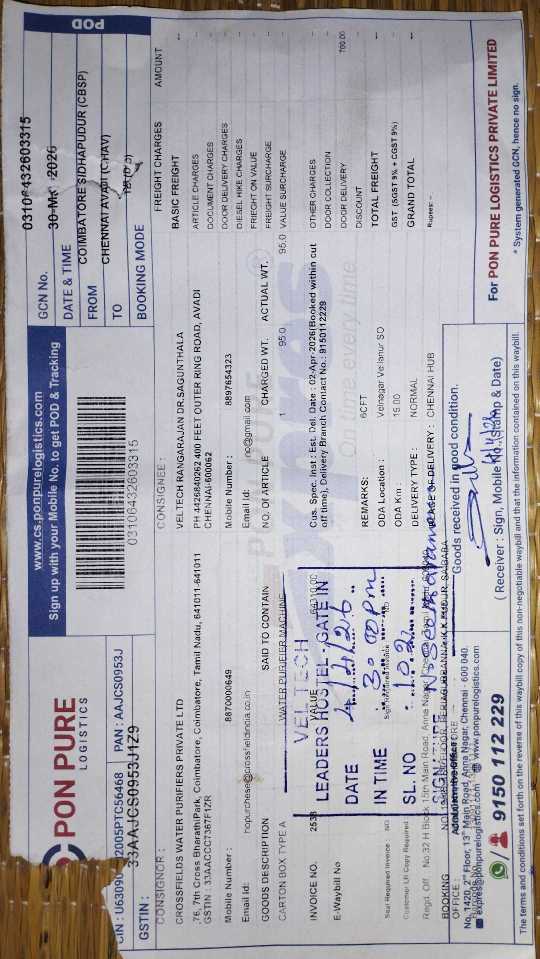 PON PURE
LOGISTICS
CIN : U63090 2005PTC56468 PAN : AAJCS0953J
GSTIN : 33AAJCS0953J1Z9
www.cs.ponpurelogistics.com
Sign up with your Mobile No. to get POD & Tracking
03106432603315
POD
GCN No. 03106432603315
DATE & TIME 30-Mar-2026
FROM COIMBATORE SIDHAPUDUR (CBSP)
TO CHENNAI AVADI (CHAV)
BOOKING MODE
CONSIGNOR :
CROSSFIELDS WATER PURIFIERS PRIVATE LTD
,76, 7th Cross BharathiPark, Coimbatore, Coimbatore, Tamil Nadu, 641011-641011
GSTIN : 33AACCC7367F1ZR
Mobile Number : 8870000649
Email Id: hopurchese@crossfieldindia.co.in
CONSIGNEE :
VELTECH RANGARAJAN DR SAGUNTHALA
PH 4426840262 400 FEET OUTER RING ROAD, AVADI
CHENNAI-600062
Mobile Number : 8897654323
Email Id: no@gmail.com
GOODS DESCRIPTION SAID TO CONTAIN NO. OF ARTICLE CHARGED WT. ACTUAL WT.
CARTON BOX TYPE A WATER PURIFIER MACHINE 1 95.0 95.0
INVOICE NO. 2533 VALUE 64310.00
E-Waybill No
Seal Required Invoice NO
Customer LR Copy Required
Cus. Spec. Inst : Est. Del. Date : 02-Apr-2026(Booked within cut
off time), Delivery Branch Contact No.: 9150112229
REMARKS: 6CFT
ODA Location : Velnagar Vellanur SO
ODA Km : 15.00
DELIVERY TYPE : NORMAL
PLACE OF DELIVERY : CHENNAI HUB
FREIGHT CHARGES AMOUNT
BASIC FREIGHT --
ARTICLE CHARGES --
DOCUMENT CHARGES --
DOOR DELIVERY CHARGES --
DIESEL HIKE CHARGES --
FREIGHT ON VALUE --
FREIGHT SURCHARGE --
VALUE SURCHARGE --
OTHER CHARGES --
DOOR COLLECTION --
DOOR DELIVERY 700.00
DISCOUNT --
TOTAL FREIGHT --
GST (SGST 9% + CGST 9%) --
GRAND TOTAL --
Rupees: --
VEL TECH
LEADERS HOSTEL - GATE IN
DATE 4/4/26
IN TIME
SL. NO 102
SIGNATURE
Regd. Off : No 32 H Block 15th Main Road Anna Nagar
BOOKING OFFICE :
No. 1420, 2nd Floor, 13th Main Road, Anna Nagar, Chennai - 600 040.
express@ponpurelogistics.com www.ponpurelogistics.com
9150 112 229
Goods received in good condition.
( Receiver : Sign, Mobile No. (Stamp & Date)
For PON PURE LOGISTICS PRIVATE LIMITED
* System generated GCN, hence no sign.
The terms and conditions set forth on the reverse of this waybill copy of this non-negotiable waybill and that the information contained on this waybill.
On time, every time